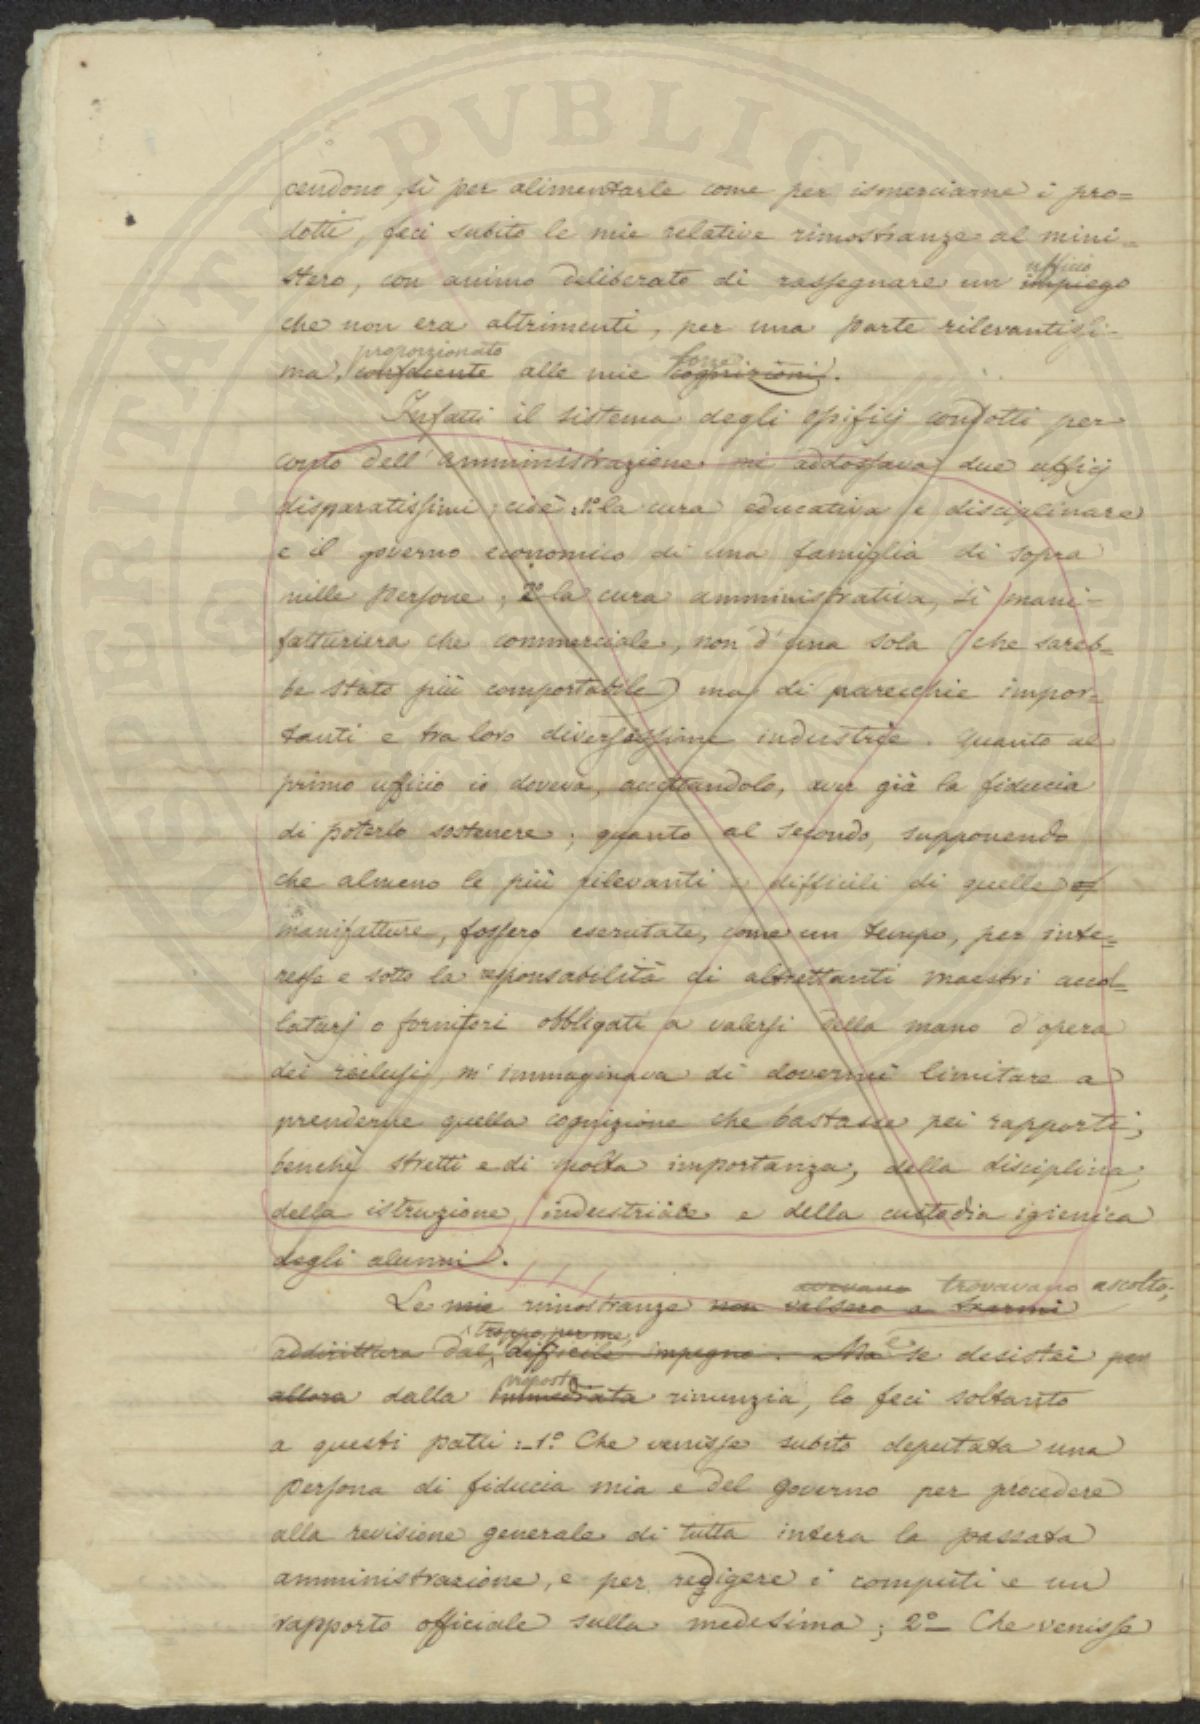 cendono, sì per alimentarle come per ismerciarne i pro=
dotti, feci subito le mie relative rimostranze al mini=
ufficio
stero, con animo deliberato di rassegnare un impiego
che non era altrimenti, per una parte rilevantissi-
proporzionato forze
ma, confacente alle mie cognizioni.
Infatti il sistema degli opificj condotti per
conto dell'amministrazione mi addossava due ufficj
disparatissimi; cioè: 1.° la cura educativa e disciplinare
e il governo economico di una famiglia di sopra
mille persone; 2.° la cura amministrativa, sì mani-
fatturiera che commerciale, non d'una sola (che sareb=
be stato più comportabile) ma di parecchie impor=
tanti e tra loro diversissime industrie. Quanto al
primo ufficio io doveva, accettandolo, aver già la fiducia
di poterlo sostenere; quanto al secondo, supponendo
che almeno le più rilevanti e difficili di quelle
manifatture, fossero esercitate, come un tempo, per inte=
resse e sotto la responsabilità di altrettanti maestri accol=
latarj o fornitori obbligati a valersi della mano d'opera
dei reclusi, m'immaginava di dovermi limitare a
prenderne quella cognizione che bastasse pei rapporti,
benchè stretti e di molta importanza, della disciplina,
della istruzione industriale e della custodia igienica
degli alunni.
avevano trovavano ascolto;
Le mie rimostranze non valsero a trarmi
troppo per me, e
addirittura dal difficile impegno. Ma se desistei per
proposta
allora dalla immediata rinunzia, lo feci soltanto
a questi patti: 1.° Che venisse subito deputata una
persona di fiducia mia e del governo per procedere
alla revisione generale di tutta intera la passata
amministrazione, e per redigere i computi e un
rapporto officiale sulla medesima; 2.° Che venisse
COPERITATI PVBLICAE